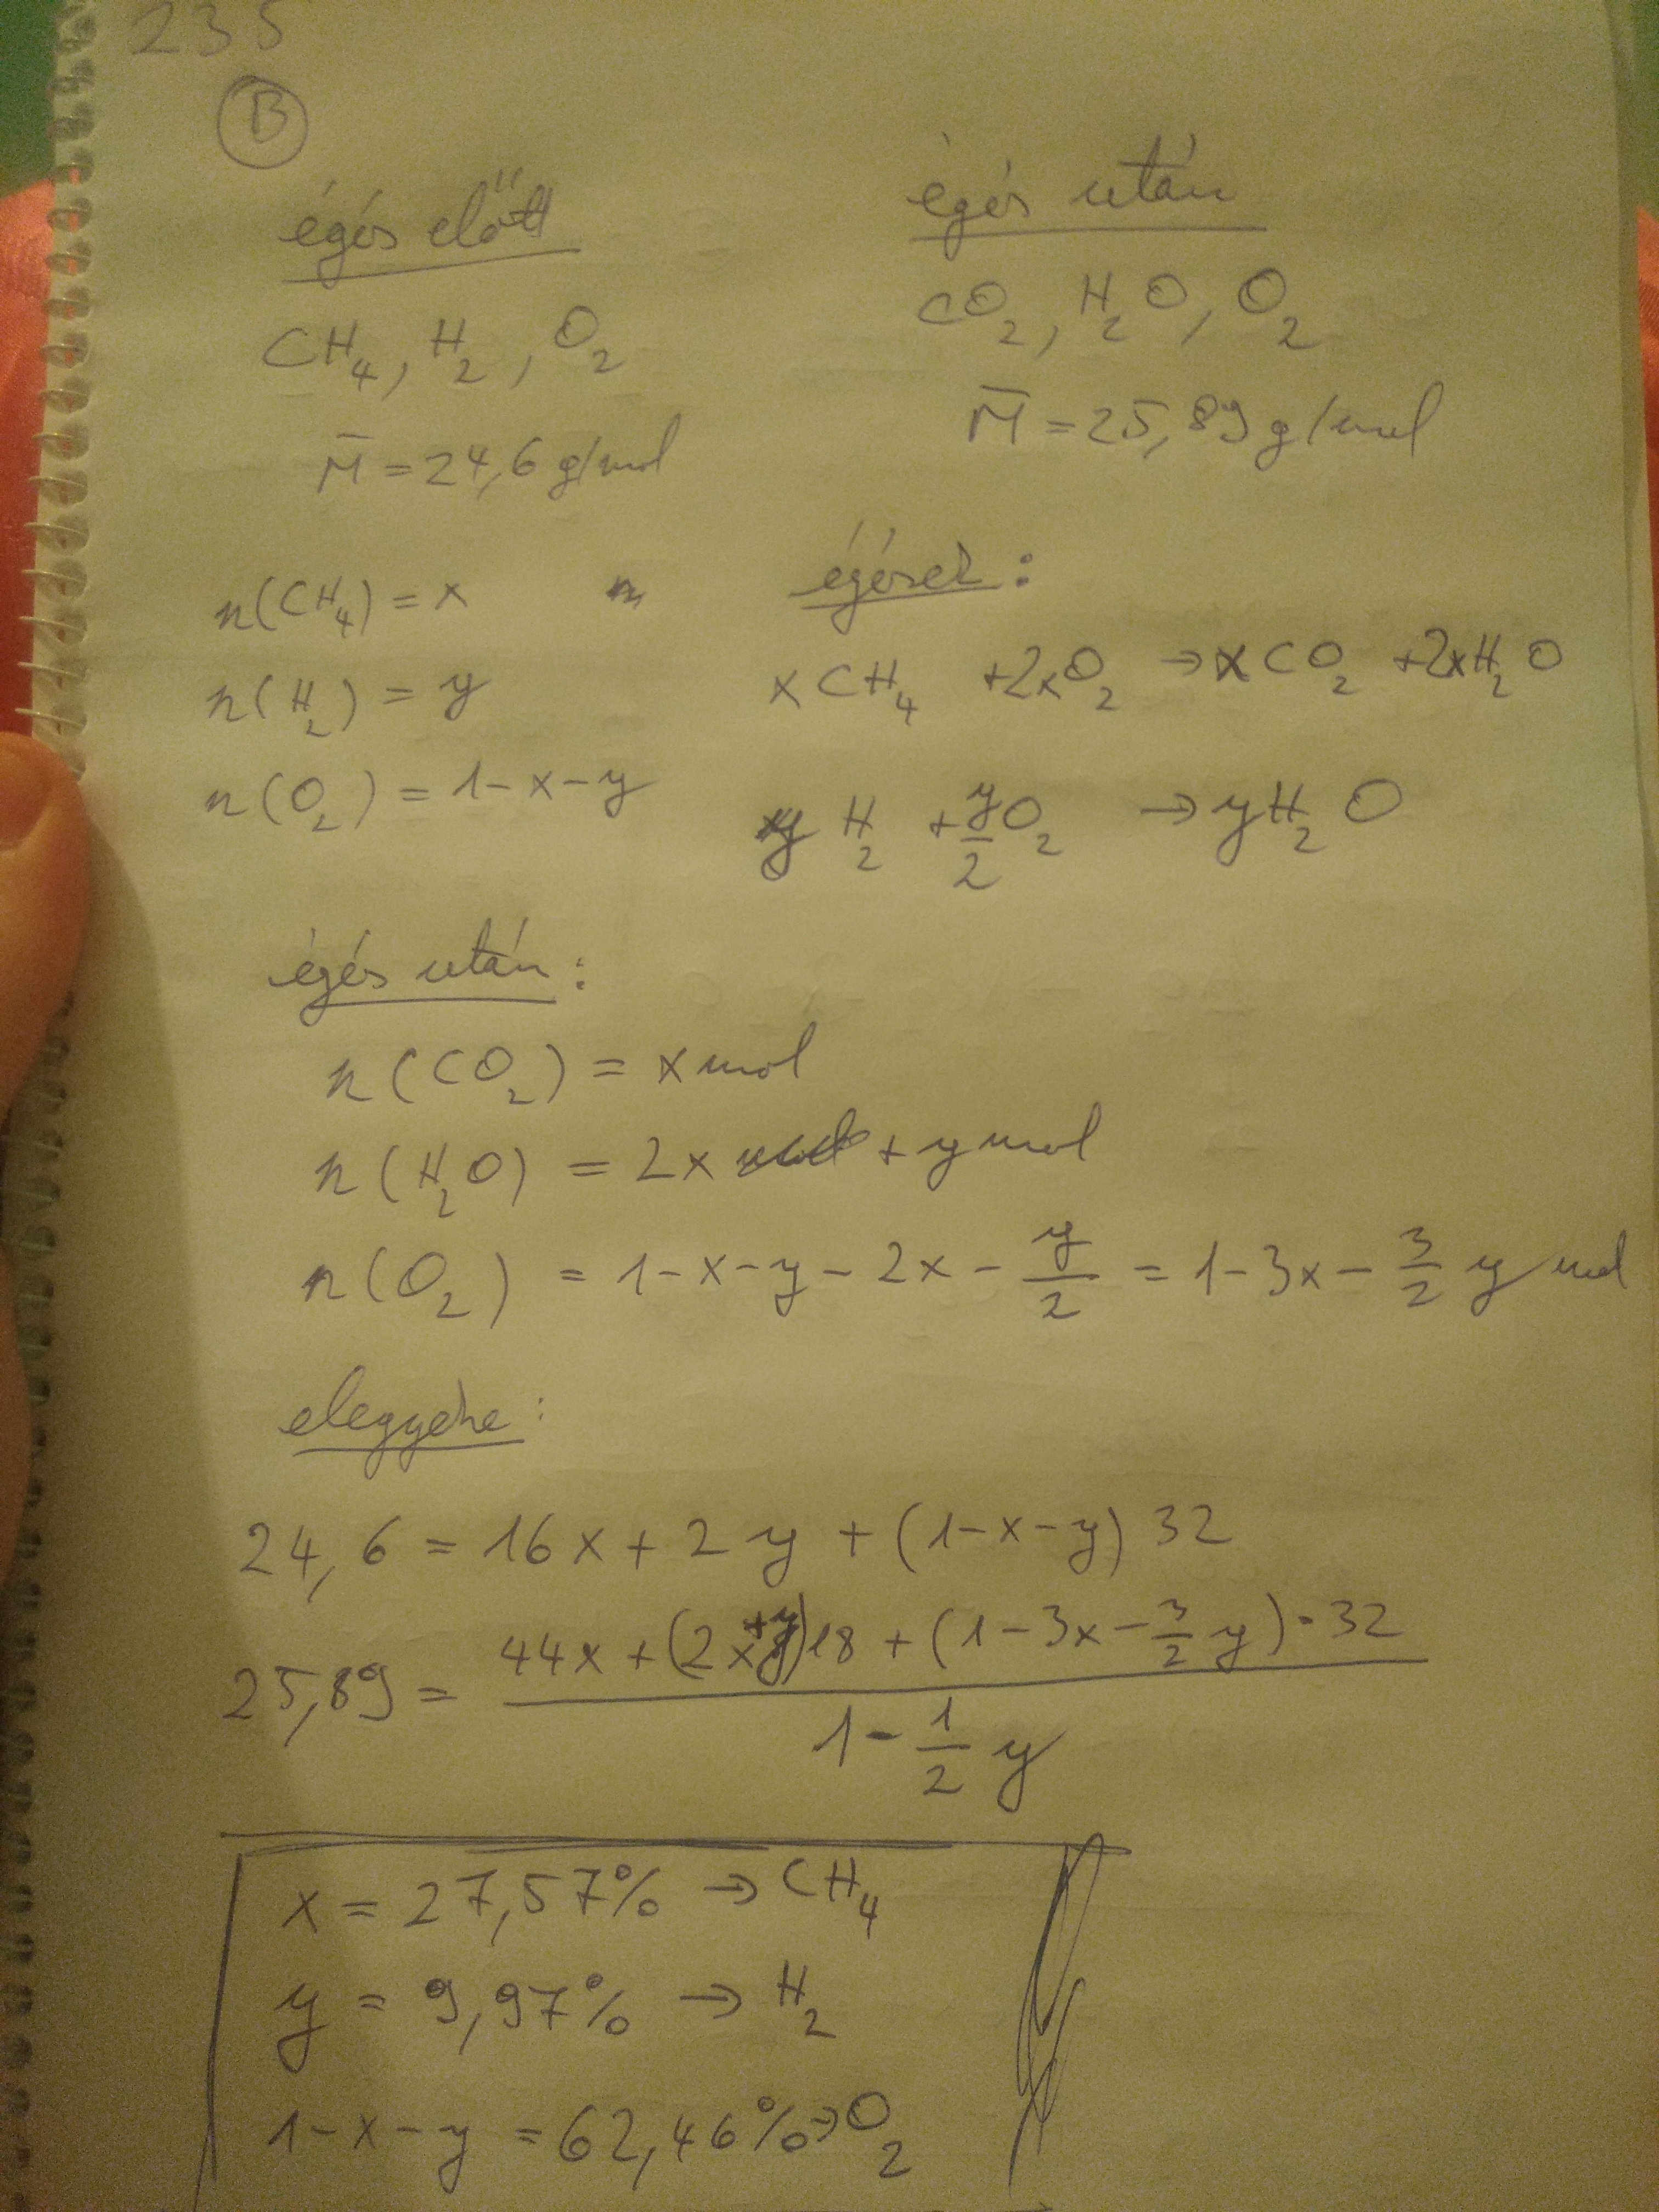 235
B
égés előtt
CH₄, H₂, O₂
M̄ = 24,6 g/mol
égés után
CO₂, H₂O, O₂
M̄ = 25,89 g/mol
n(CH₄) = x n
n(H₂) = y
n(O₂) = 1-x-y
égések:
x CH₄ + 2x O₂ → x CO₂ + 2x H₂O
y H₂ + y/2 O₂ → y H₂O
égés után:
n(CO₂) = x mol
n(H₂O) = 2x + y mol
n(O₂) = 1-x-y-2x-y/2 = 1-3x-3/2 y mol
elegyekre:
24,6 = 16x + 2y + (1-x-y) 32
25,89 = (44x + (2x+y)18 + (1-3x-3/2 y)·32) / (1-1/2 y)
x = 27,57% → CH₄
y = 9,97% → H₂
1-x-y = 62,46% → O₂